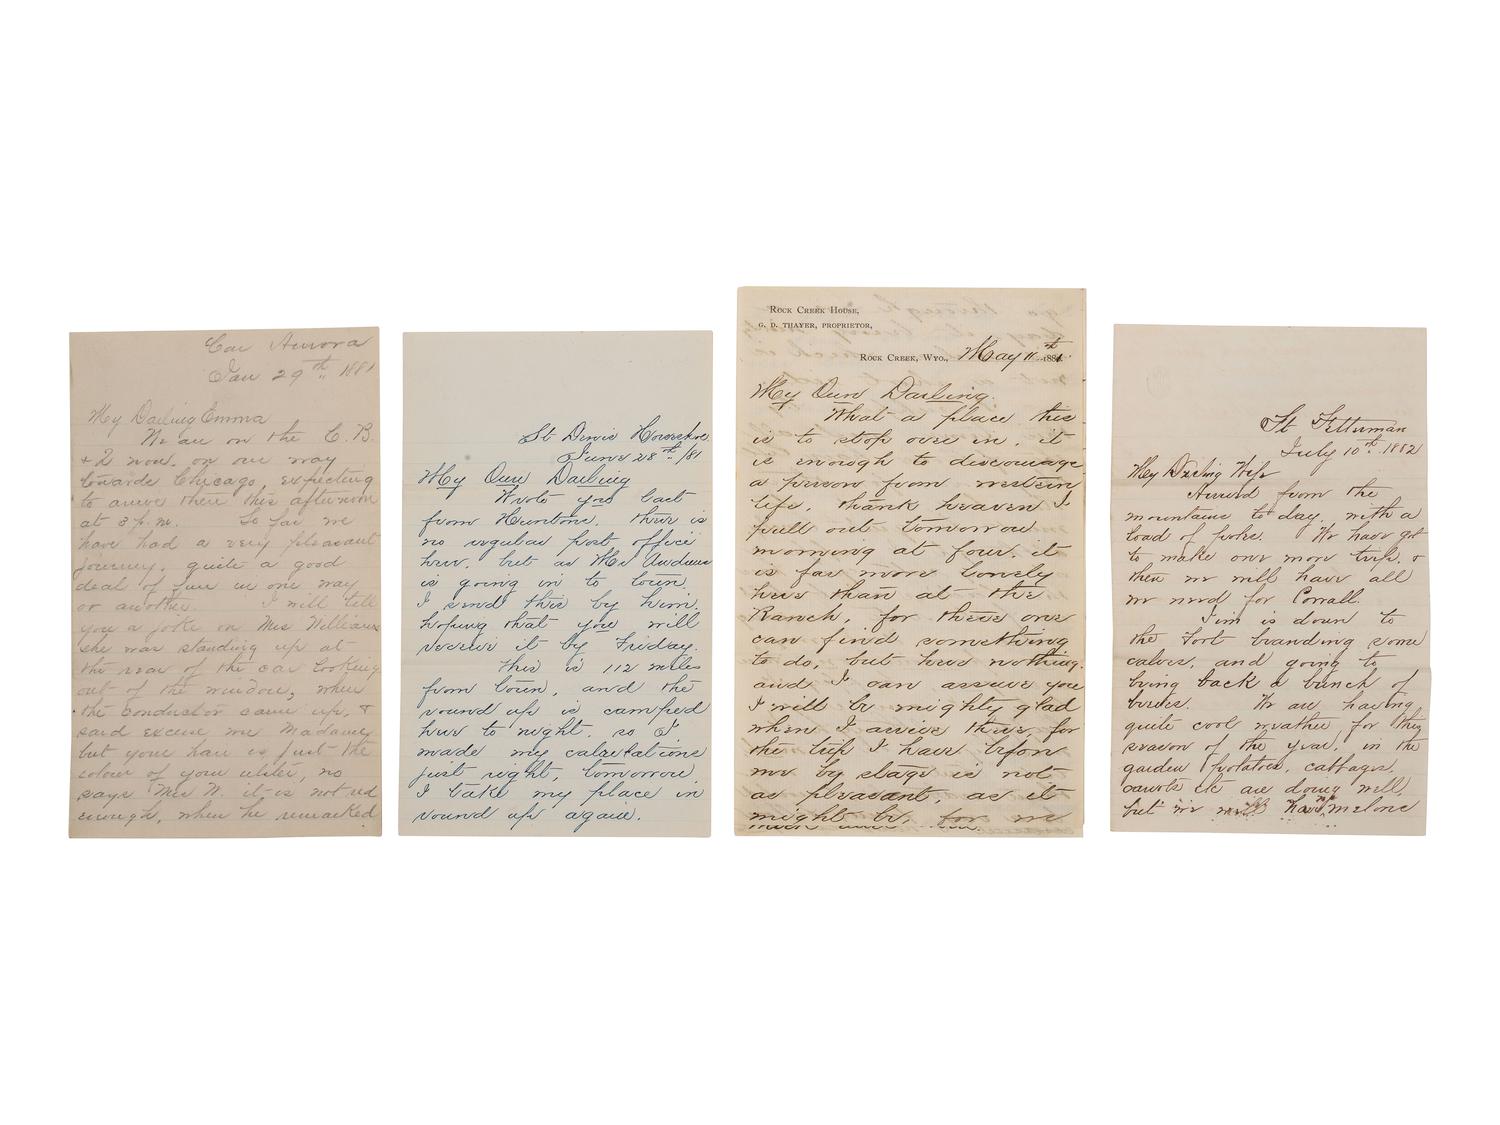 Car Aurora
Jan 29th 1881
My Darling Emma
We are on the C. B.
& 2 now, on our way
towards Chicago, expecting
to arrive there this afternoon
at 3 p.m. So far we
have had a very pleasant
journey, quite a good
deal of fun in one way
or another. I will tell
you a joke on Mrs Williams
she was standing up at
the rear of the car looking
out of the window, when
the conductor came up, &
said excuse me Madame
but your hair is just the
colour of your ulster, no
says Mrs W. it is not red
enough, when he remarked
St Denis
June 28th /81
My Own Darling
Wrote you last
from Huntons. there is
no regular post office
here, but as Mr
is going in to town
I send this by him,
hoping that you will
receive it by Friday.
This is 112 miles
from town, and the
round up is camped
here to night, so I
made my calculations
just right, tomorrow
I take my place in
round up again.
ROCK CREEK HOUSE,
G. D. THAYER, PROPRIETOR,
ROCK CREEK, WYO., May 11th 1881
My Own Darling.
What a place this
is to stop over in, it
is enough to discourage
a person from western
life, thank heaven I
pull out tomorrow
morning at four, it
is far more lonely
here than at the
Ranch, for there one
can find something
to do, but here nothing.
and I can assure you
I will be mighty glad
when I arrive there, for
the trip I have before
me by stage is not
as pleasant, as it
might be, for me
Ft Fetterman
July 10th 1882
My Darling Wife
Arrived from the
mountains to day, with a
load of poles. We have got
to make one more trip, &
then we will have all
we need for Corrall.
Jim is down to
the Fort branding some
calves, and going to
bring back a bunch of
beeves. We are having
quite cool weather for this
season of the year, in the
garden potatoes, cabbages,
carrots etc are doing well,
but we will have no melons